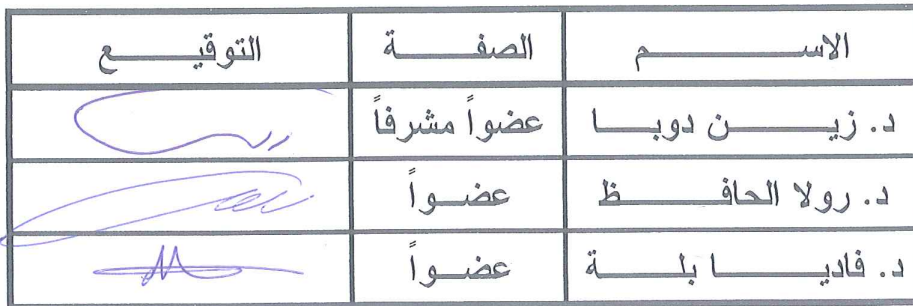 الاسم الصفة التوقيع
د. زين دوبا عضواً مشرفاً
د. رولا الحافظ عضواً
د. فاديا بلة عضواً